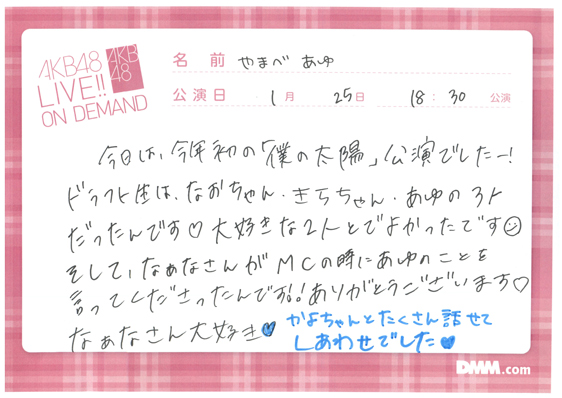 AKB48
LIVE!!
ON DEMAND
AKB
48
名 前 やまべ あゆ
公演日 1月 25日 18:30 公演
今日は、今年初の「僕の太陽」公演でしたー!
ドラフト生は、なおちゃん・きらちゃん・あゆの3人
だったんです♡大好きな2人とでよかったです☺
そして、なぁなさんがMCの時にあゆのことを
言ってくださったんです!!ありがとうございます♡
なぁなさん大好き♥
かよちゃんとたくさん話せて
しあわせでした♥
DMM.com